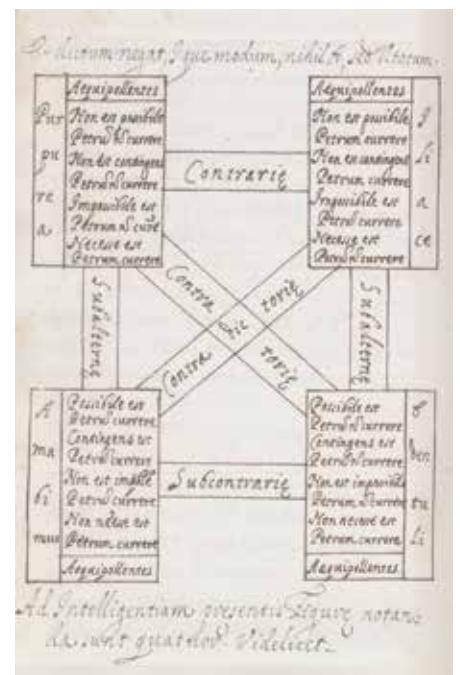 E. dictum negat, I que modum, nihil A, sed U totum.
Aequipollentes
Non est possibile
Petrū n̄ currere
Non est contingens
Petrū n̄ currere
Impossibile est
Petrum n̄ curre
Necesse est
Petrum currere
Pur
pu
re
a
Contrarię
Aequipollentes
Non est possibile
Petrum currere
Non est contingens
Petrum currere
Impossibile est
Petrū currere
Necesse est
Petrū n̄ currere
I
li
a
ce
Subalternę
Contra
dic
torię
Contra
torię
Subalternę
A
ma
bi
mus
Possibile est
Petrū currere
Contingens est
Petrū currere
Non est
Petrū currere
Non est
Petrum currere
Aequipollentes
Subcontrarię
Possibile est
Petrū n̄ currere
Contingens est
Petrū n̄ currere
Non est
Petrum n̄ currere
Non necesse est
Petrum currere
Aequipollentes
den
tu
li
Ad Intelligentiam presentis Figurę notan
da sunt quatuor. Videlicet.